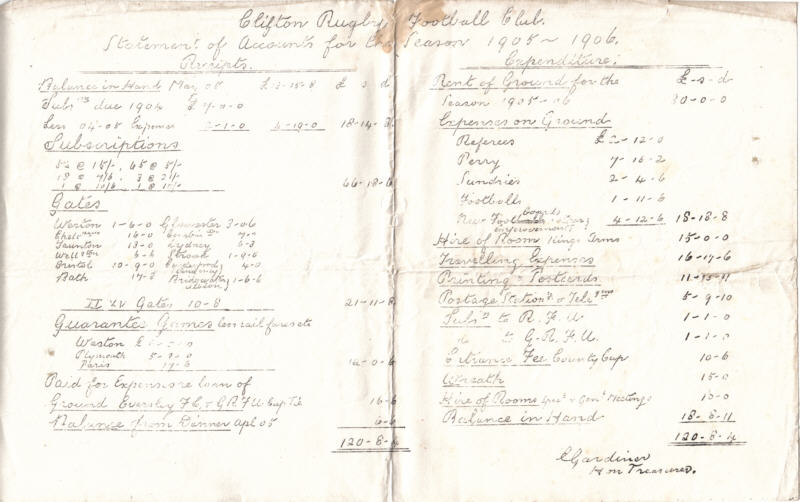 Clifton Rugby Football Club.
Statement of Accounts for the Season 1905 ~ 1906.
Receipts.
Balance in Hand May 05 £13-15-8 £ s d
Subs due 1904 £7-0-0
Less 04-05 Expenses 2-1-0 4-19-0 18-14-8
Subscriptions
@ 15/-, 65 @ 5/-
66-18-6
Gates
Weston 1-6-0 Gloucester 3-0-6
Chelt 16-0
Taunton 13-0 Lydney 6-3
Stroud 1-9-6
Bristol 10-9-0 4-0
Bath 17-3 Bridgwater Albion 1-6-6
II & XV Gates 10-8 21-11-8
Guarantee Games less rail fares etc
Weston £
Plymouth
Paris 17-6
Paid for Expenses re loan of
Ground Eversley F.C. & G.R.F.U. Cup Tie 16-6
Balance from Dinner Apl 05 6-6
120-8-4
Expenditure.
Rent of Ground for the £-s-d
Season 1905-06 30-0-0
Expenses on Ground
Referees £2-12-0
Perry 7-16-2
Sundries 2-4-6
Footballs 1-11-6
New boards improvements 4-12-6 18-18-8
Hire of Room Kings Arms 15-0-0
Travelling Expenses 16-17-6
Printing & Postcards 11-15-11
Postage Station & Tele 5-9-10
Subs to R.F.U. 1-1-0
do to G.R.F.U. 1-1-0
Entrance Fee County Cup 10-6
Wreath 15-0
Hire of Rooms & Genl Meetings 10-0
Balance in Hand 18-8-11
120-8-4
C Gardiner
Hon Treasurer.